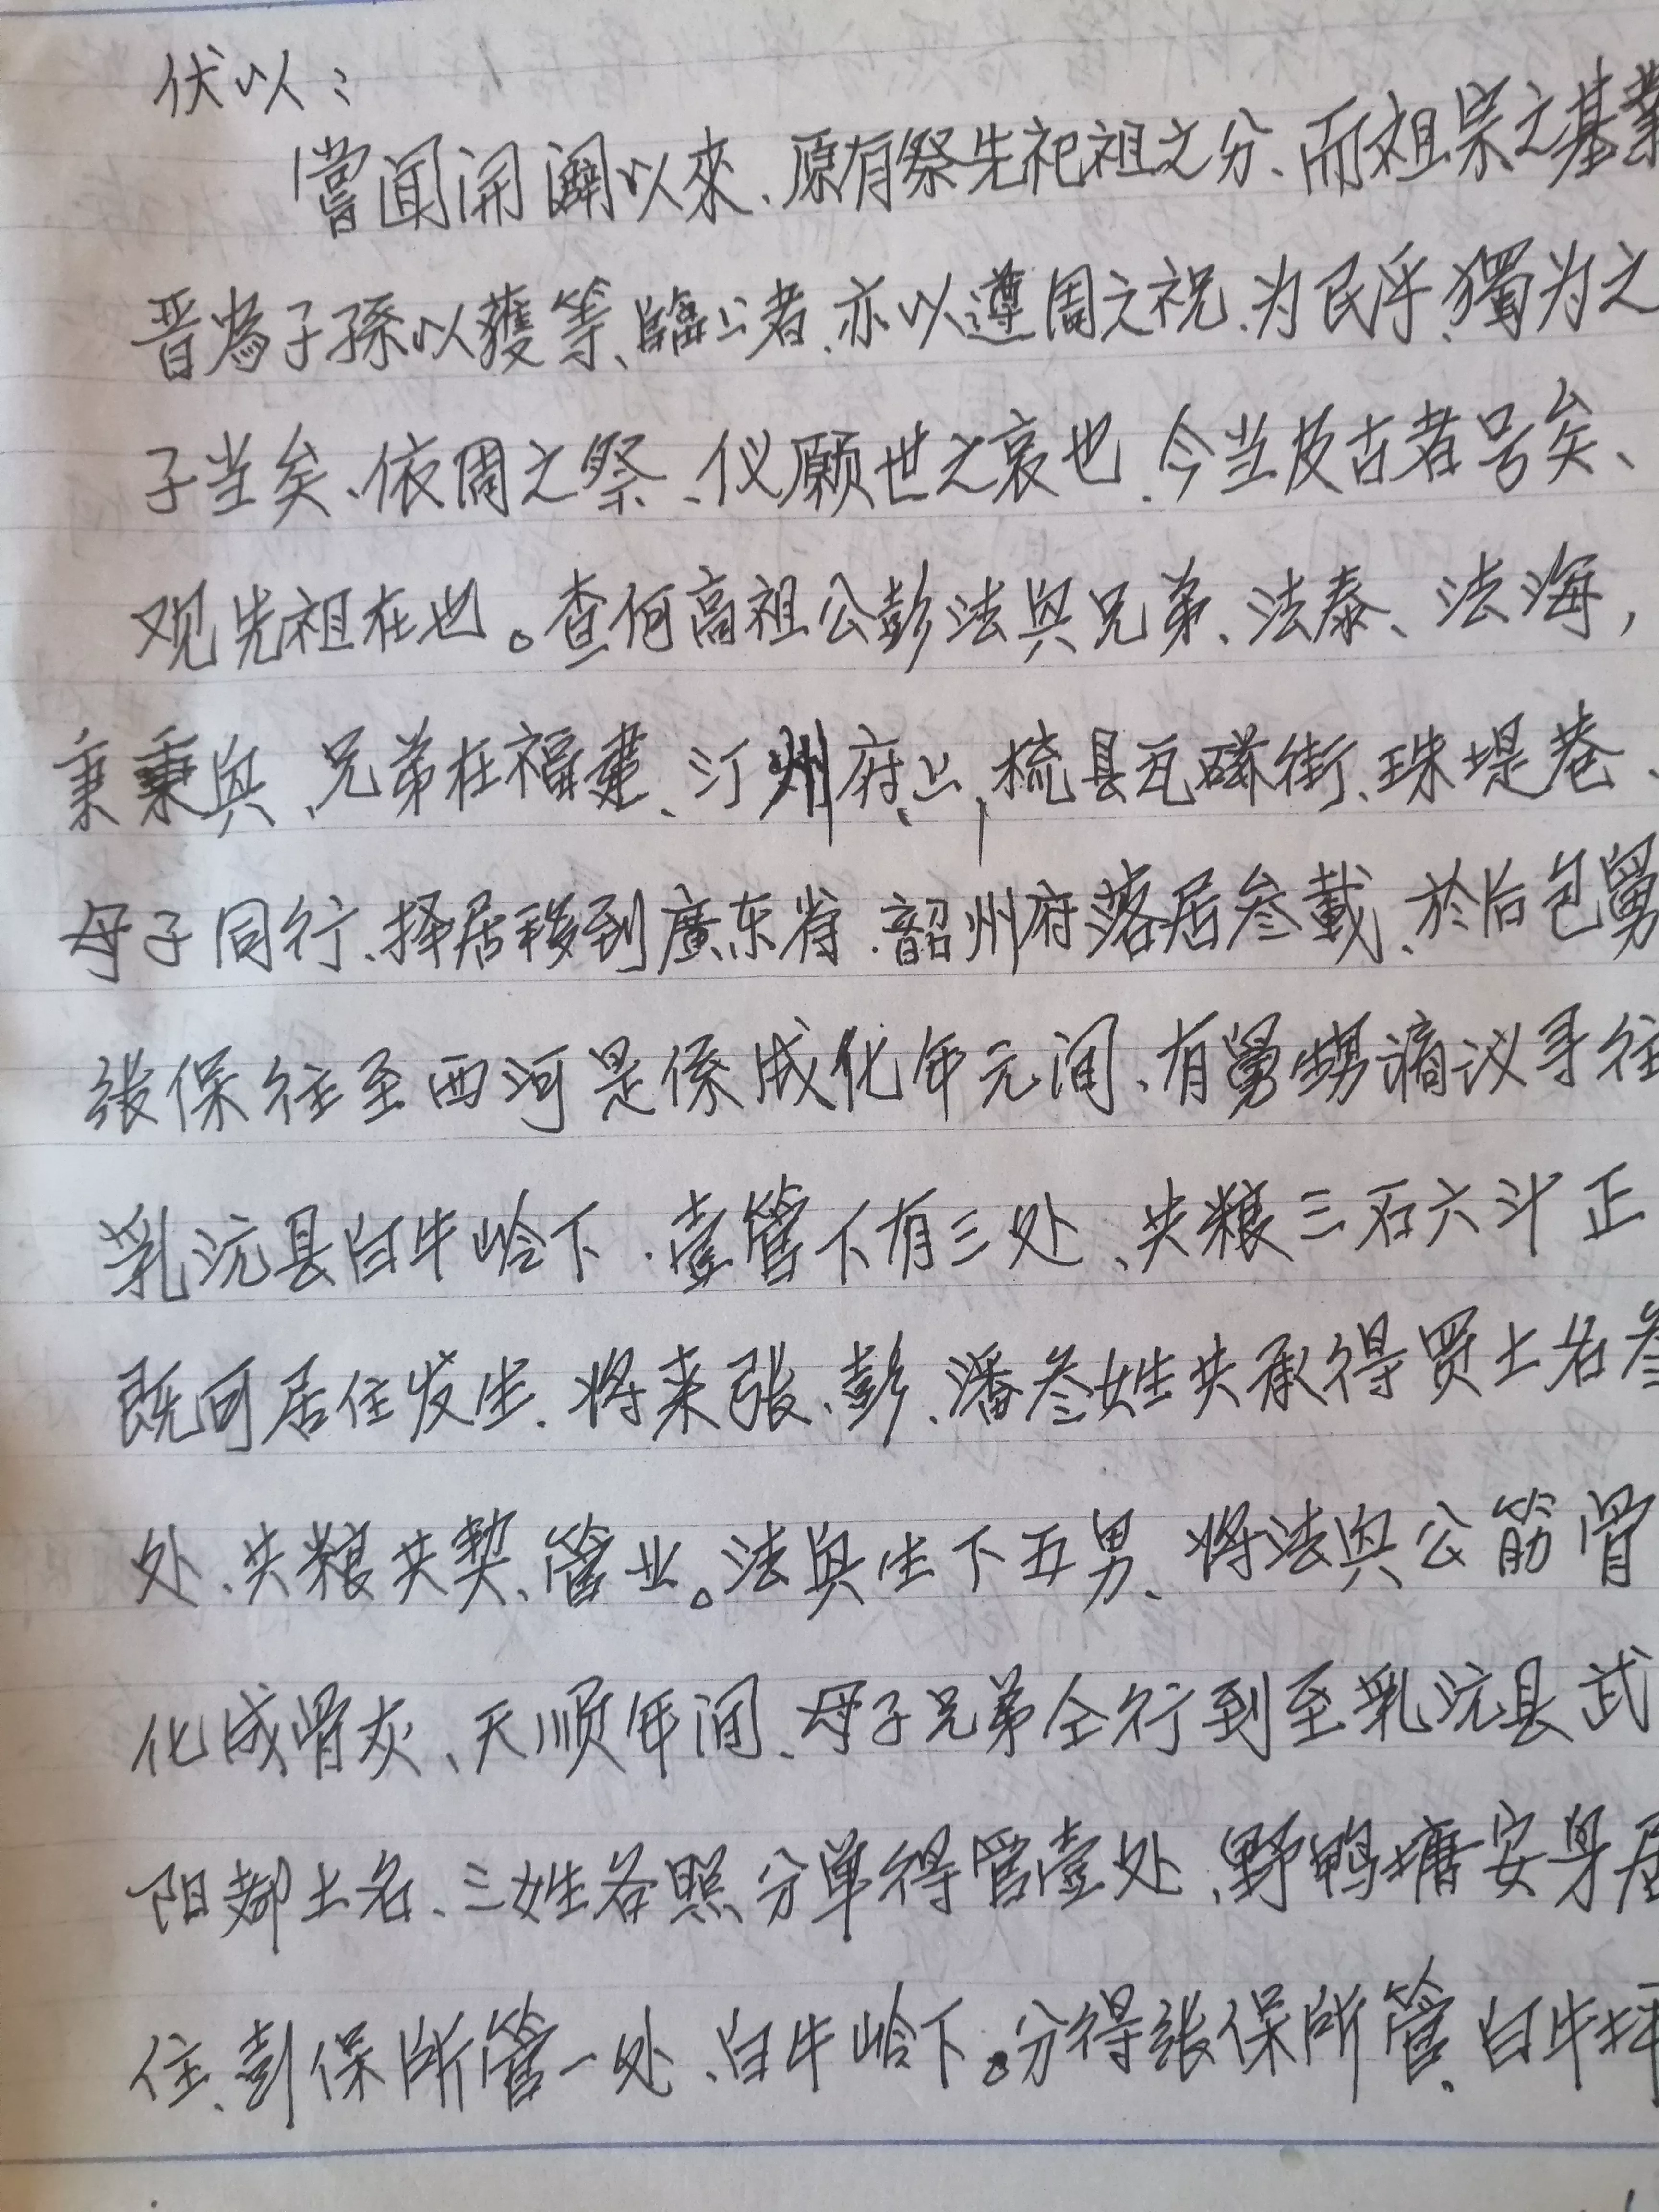 伏以：
嘗闻開闢以來、原有祭先祀祖之分、而祖宗之基業
晋為子孫以獲等、臨公者、亦以遵周之祝、为民乎、獨为之
子当矣、依周之祭、仪願世之哀也、今当及古者号矣、
观先祖在也。查何高祖公彭法興兄弟、法泰、法海，
東秉興、兄弟在福建、汀州府上梳县瓦磜街、珠堤巷、
母子同行、择居移到廣东省、韶州府落居叁載、於后包舅
张保往至西河是係成化年元间、有舅甥谪议寻往
乳沅县白牛岭下、壹管下有三处、共粮三石六斗正
既可居住发生、将来張、彭、潘叁姓共承得买土名叁
处、共粮共契、管业。法興生下五男、将法興公筋骨
化成骨灰、天顺年间、母子兄弟仝行到至乳沅县武
阳都土名、三姓各照分单得管壹处、野鸭塘安身居
住、彭保所管一处、白牛岭下。分得张保所管、白牛坪